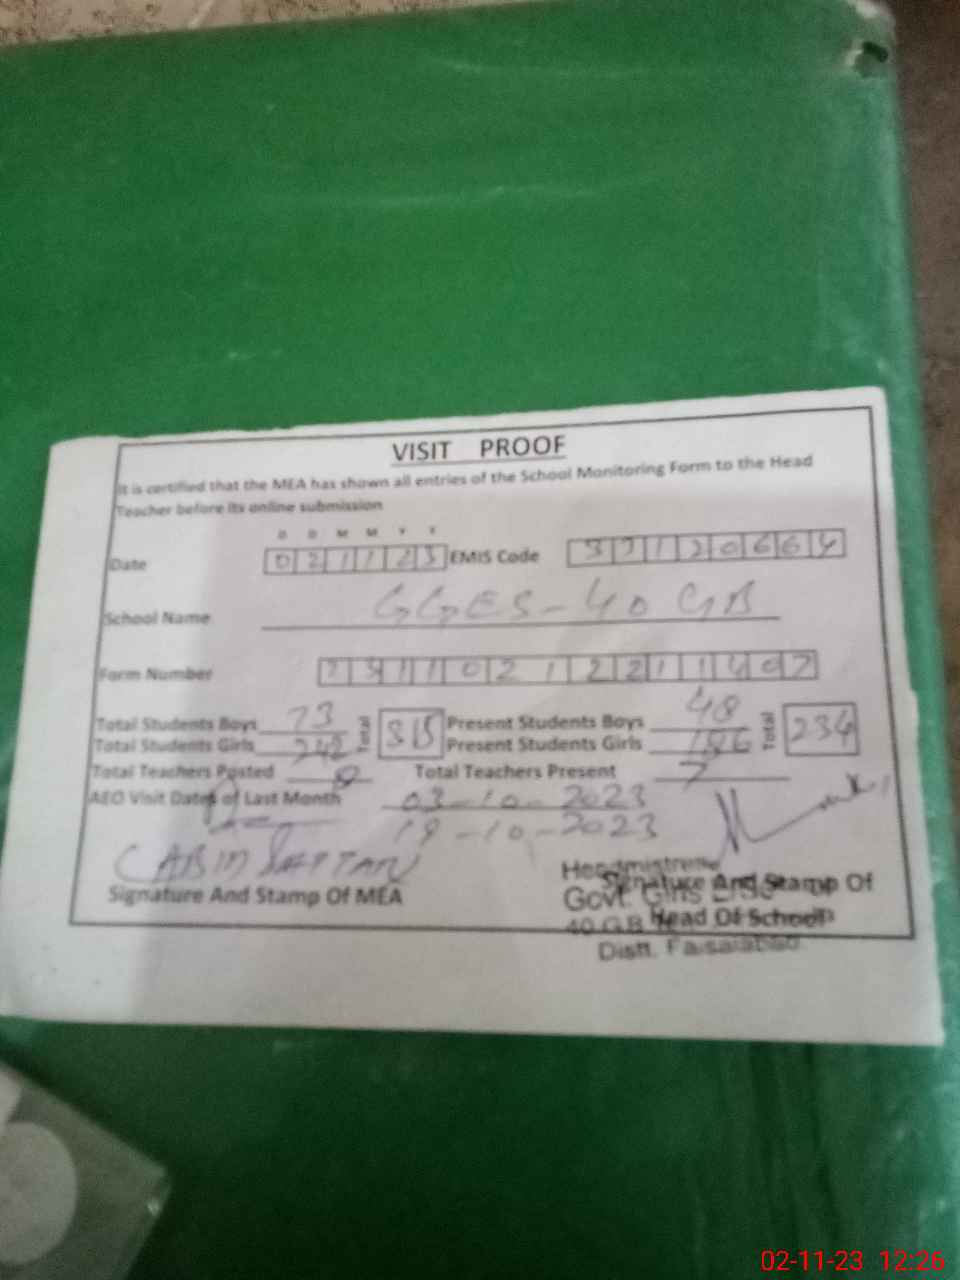 VISIT PROOF
It is certified that the MEA has shown all entries of the School Monitoring Form to the Head
Teacher before its online submission
D D M M Y Y
Date 021123 EMIS Code 33120664
School Name GGES-40 GB
Form Number
Total Students Boys 73 Total 315 Present Students Boys 48 Total 234
Total Students Girls 242 Present Students Girls 186
Total Teachers Posted 8 Total Teachers Present 7
AEO Visit Dates of Last Month 03-10-2023
19-10-2023
Signature And Stamp Of MEA
Headmistress
Signature And Stamp Of
Govt. Girls
40 G.B
Head Of School
Distt. Faisalabad
02-11-23 12:26